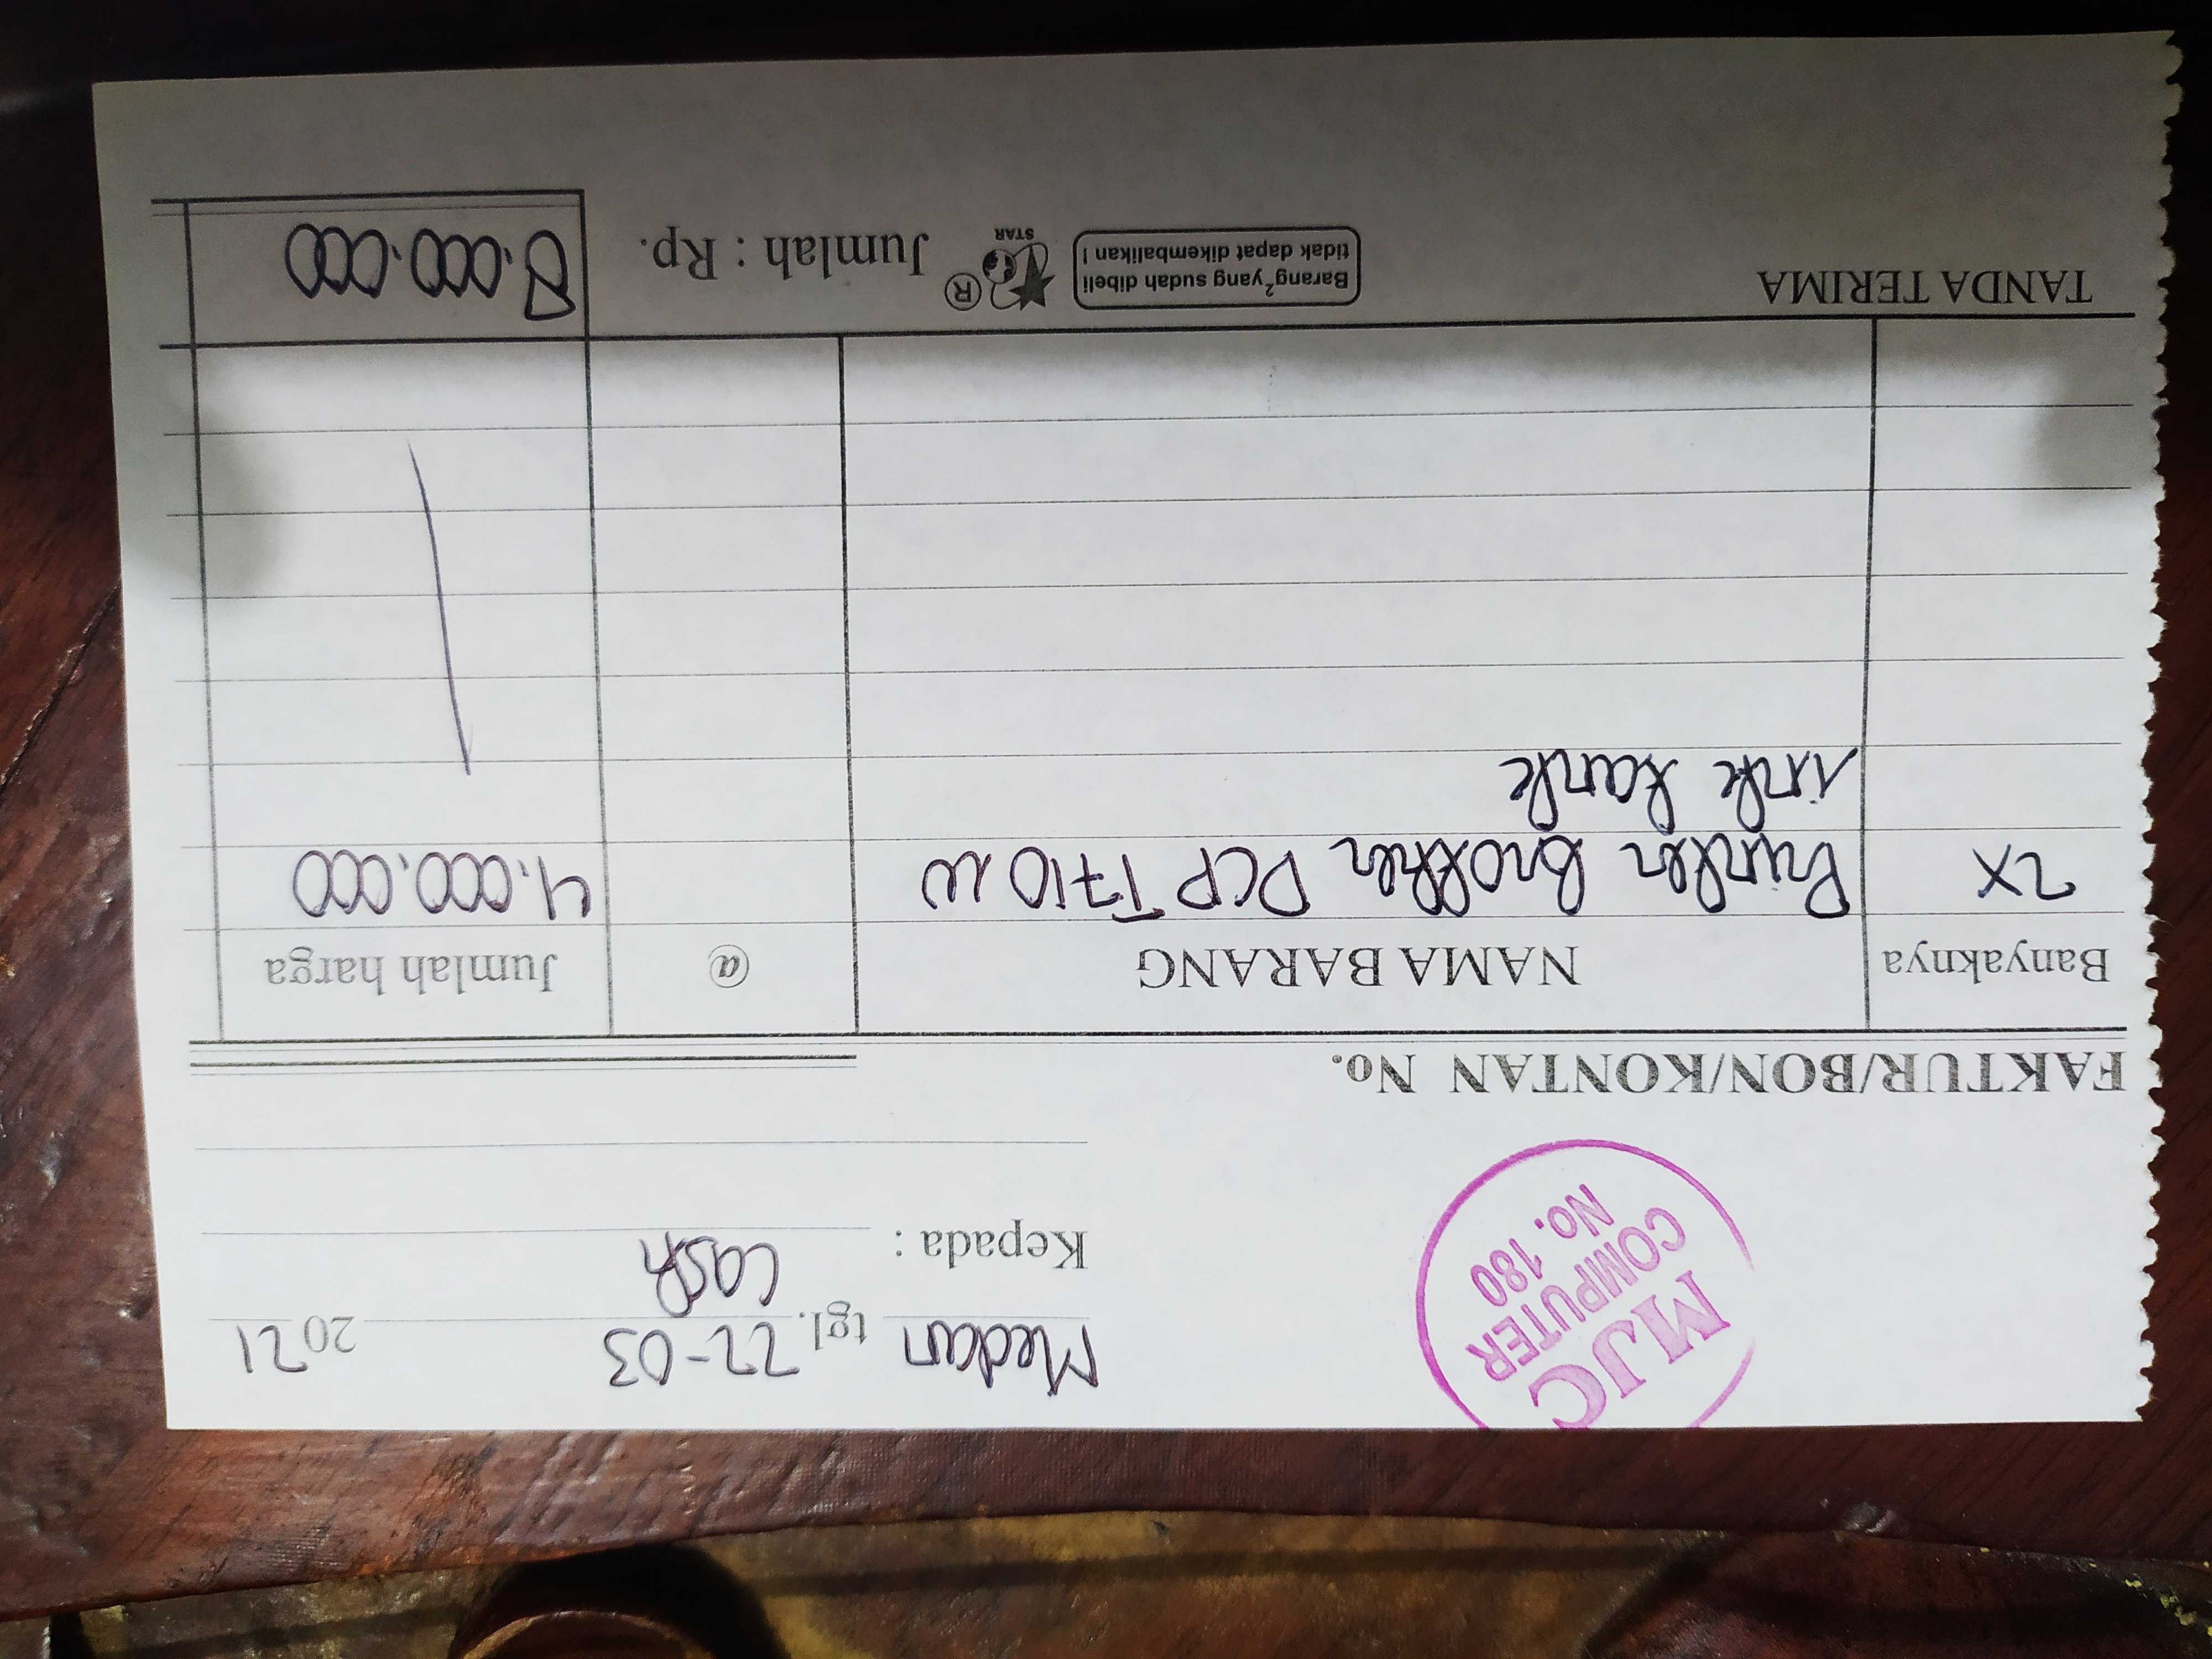 MJC
COMPUTER
No. 180
Medan tgl. 22-03 2021
Kepada : Cash
FAKTUR/BON/KONTAN No.
Banyaknya NAMA BARANG @ Jumlah harga
2X Printer Brother DCP T710 W 4.000.000
ink tank
TANDA TERIMA
Barang² yang sudah dibeli
tidak dapat dikembalikan !
STAR ®
Jumlah : Rp. 8.000.000